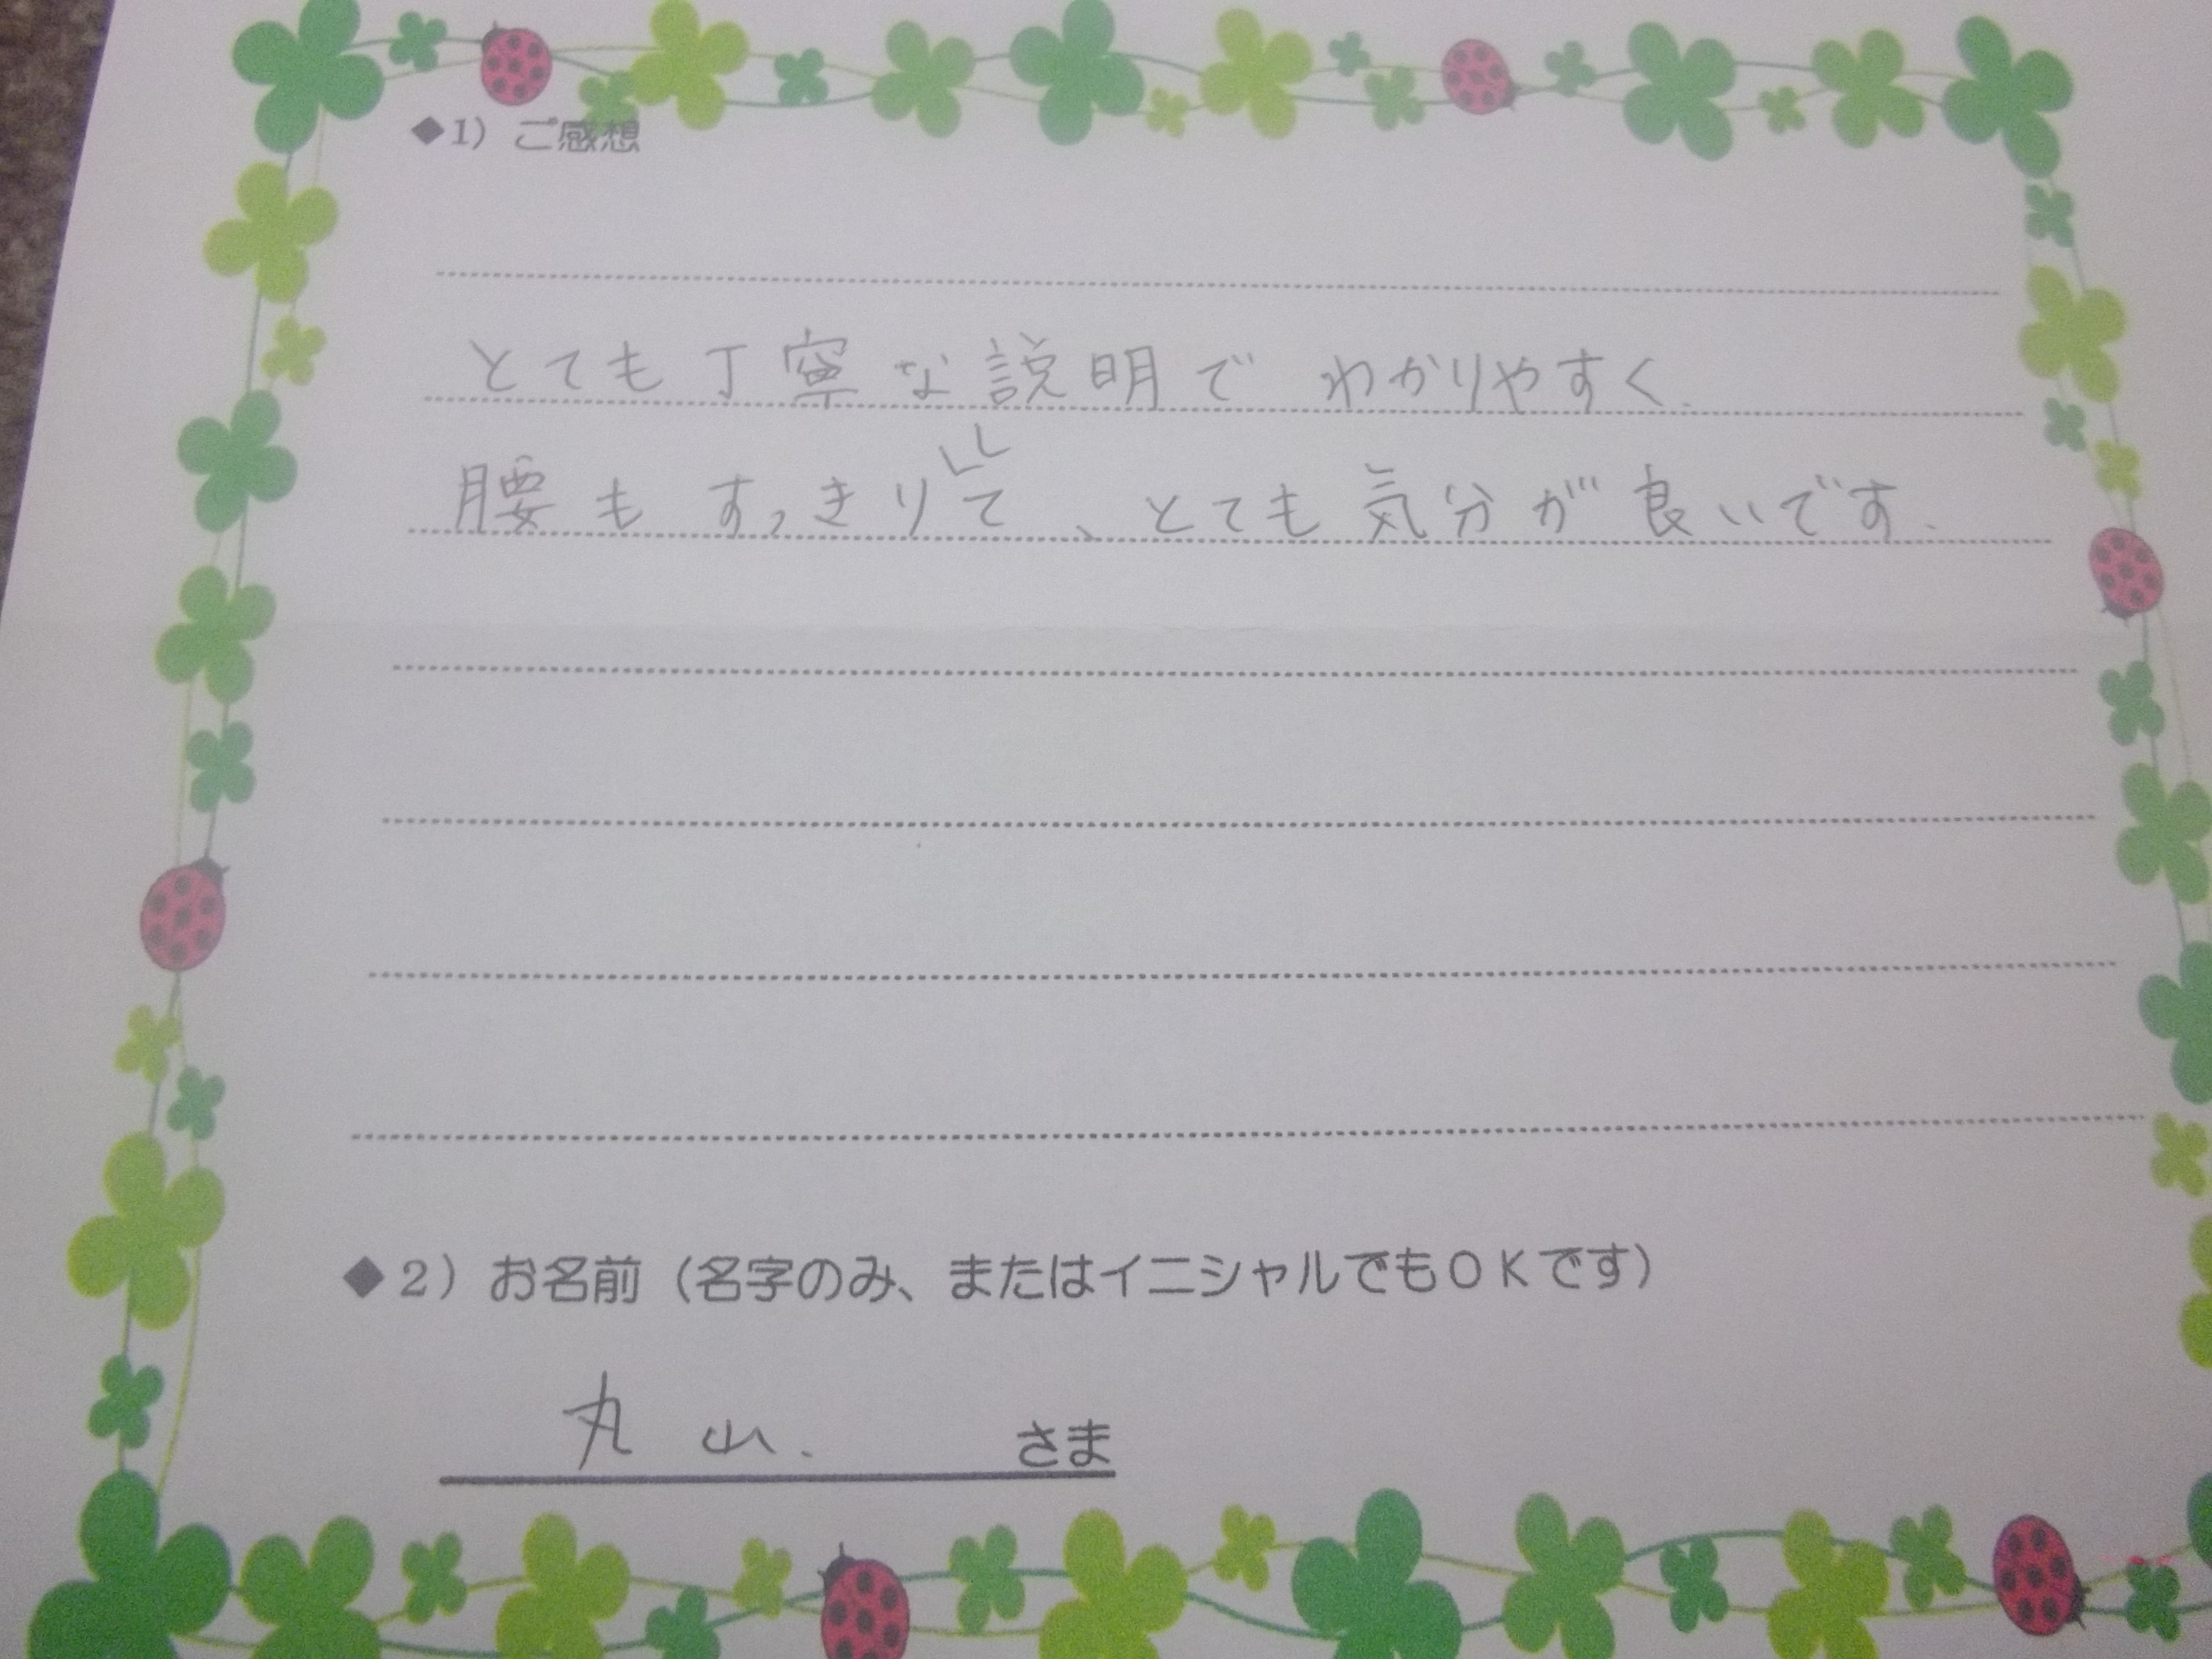 ◆1）ご感想
とても丁寧な説明でわかりやすく.
腰もすっきりして、とても気分が良いです.
◆2）お名前（名字のみ、またはイニシャルでもＯＫです）
丸山. さま